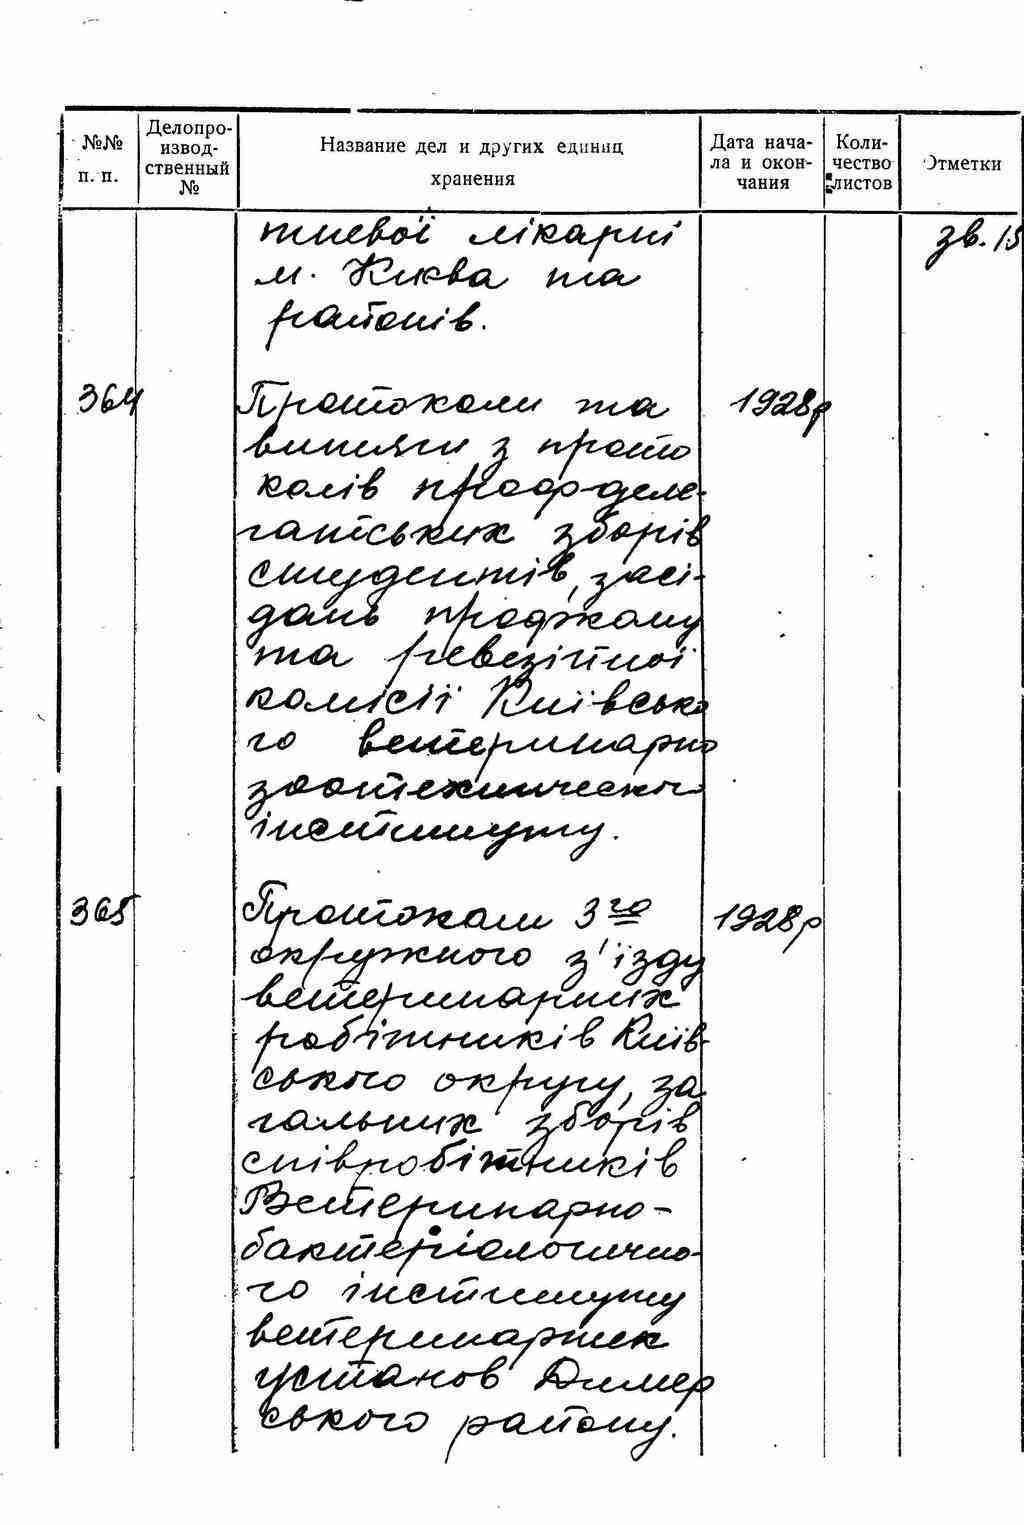 №№ п. п.
Делопро-
извод-
ственный
№
Название дел и других единиц
хранения
Дата нача-
ла и окон-
чания
Коли-
чество
листов
Отметки
тневої лікарні
м. Києва та
районів.
зв. 15
364
Протоколи та
витяги з прото
колів профделе-
гатських зборів
студентів, засі-
дань профкому
та ревезійної
комісії Київсько
го ветеринарно
зоотехническог
інституту.
1928р
365
Протоколи 3го
окружного з'їзду
ветеринарних
робітників Київ-
ського округу, за
гальних зборів
співробітників
Ветеринарно-
бактеріологично-
го інституту
ветеринарних
установ Димер
ського району.
1928р